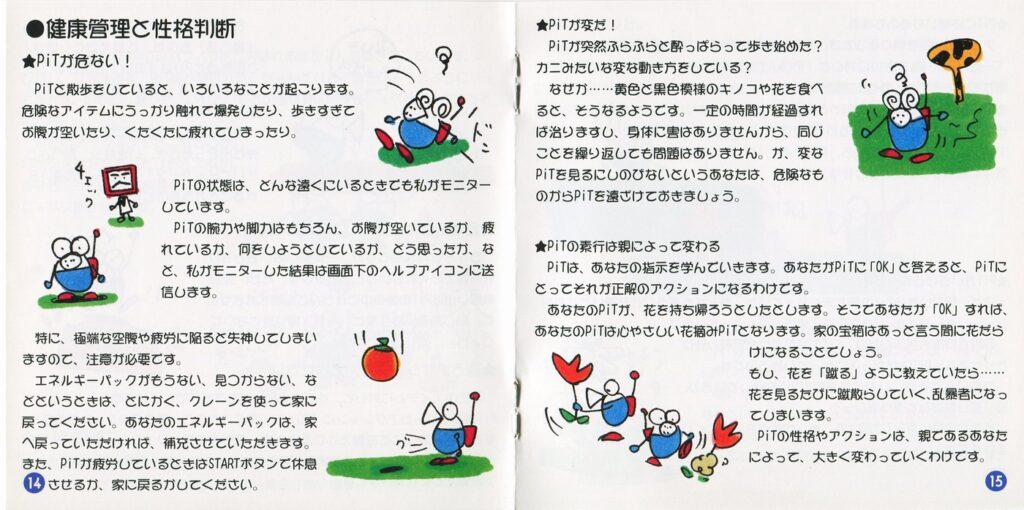 ●健康管理と性格判断
★PiTが危ない！
PiTと散歩をしていると、いろいろなことが起こります。
危険なアイテムにうっかり触れて爆発したり、歩きすぎて
お腹が空いたり、くたくたに疲れてしまったり。
ドン
チェック
PiTの状態は、どんな遠くにいるときでも私がモニター
しています。
PiTの腕力や脚力はもちろん、お腹が空いているか、疲
れているか、何をしようとしているか、どう思ったか、な
ど、私がモニターした結果は画面下のヘルプアイコンに送
信します。
特に、極端な空腹や疲労に陥ると失神してしまい
ますので、注意が必要です。
エネルギーパックがもうない、見つからない、な
どというときは、とにかく、クレーンを使って家に
戻ってください。あなたのエネルギーパックは、家
へ戻っていただければ、補充させていただきます。
また、PiTが疲労しているときはSTARTボタンで休息
させるか、家に戻るかしてください。
14
★PiTが変だ！
PiTが突然ふらふらと酔っぱらって歩き始めた？
カニみたいな変な動き方をしている？
なぜか……黄色と黒色模様のキノコや花を食べ
ると、そうなるようです。一定の時間が経過すれ
ば治りますし、身体に害はありませんから、同じ
ことを繰り返しても問題はありません。が、変な
PiTを見るにしのびないというあなたは、危険なも
のからPiTを遠ざけておきましょう。
★PiTの素行は親によって変わる
PiTは、あなたの指示を学んでいきます。あなたがPiTに「OK」と答えると、PiTに
とってそれが正解のアクションになるわけです。
あなたのPiTが、花を持ち帰ろうとしたとします。そこであなたが「OK」すれば、
あなたのPiTは心やさしい花摘みPiTとなります。家の宝箱はあっと言う間に花だら
けになることでしょう。
もし、花を「蹴る」ように教えていたら……
花を見るたびに蹴散らしていく、乱暴者になっ
てしまいます。
PiTの性格やアクションは、親であるあなた
によって、大きく変わっていくわけです。
15